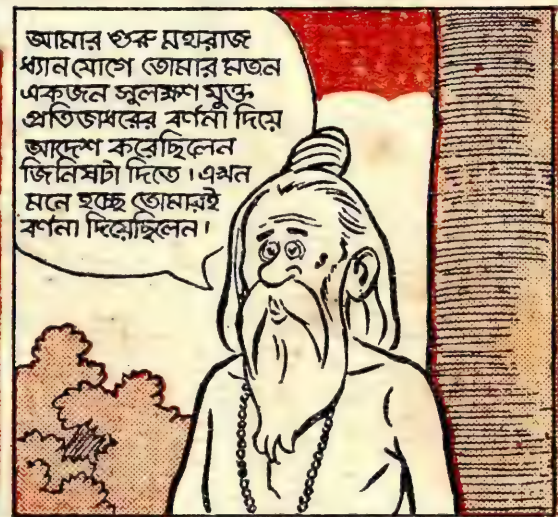 আমার গুরু মহারাজ
ধ্যান যোগে তোমার মতন
একজন সুলক্ষণ যুক্ত
প্রতিভাধরের বর্ণনা দিয়ে
আদেশ করেছিলেন
জিনিষটা দিতে। এখন
মনে হচ্ছে তোমারই
বর্ণনা দিয়েছিলেন।